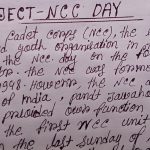 JECT-NCC DAY
Cadet Corps (NCC), the s
d youth organisation in
the NCC day on the fo
r. the NCC was formed
1948. However, the NCC
of India, Pandit Jawaha
presided over function
the first NCC unit
the last Sunday of